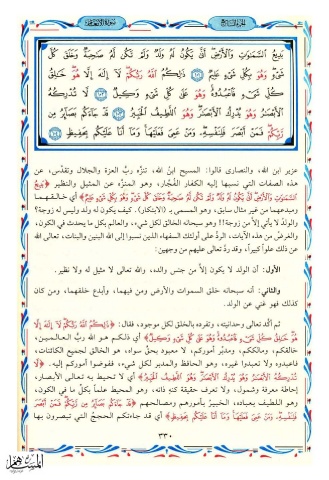 بَدِيعُ السَّمَٰوَٰتِ وَالْأَرْضِ أَنَّىٰ يَكُونُ لَهُ وَلَدٌ وَلَمْ تَكُن لَّهُ صَاحِبَةٌ وَخَلَقَ كُلَّ
شَيْءٍ وَهُوَ بِكُلِّ شَيْءٍ عَلِيمٌ ذَٰلِكُمُ اللَّهُ رَبُّكُمْ لَا إِلَٰهَ إِلَّا هُوَ خَٰلِقُ
كُلِّ شَيْءٍ فَاعْبُدُوهُ وَهُوَ عَلَىٰ كُلِّ شَيْءٍ وَكِيلٌ لَّا تُدْرِكُهُ
الْأَبْصَٰرُ وَهُوَ يُدْرِكُ الْأَبْصَٰرَ وَهُوَ اللَّطِيفُ الْخَبِيرُ قَدْ جَاءَكُم بَصَائِرُ مِن
رَّبِّكُمْ فَمَنْ أَبْصَرَ فَلِنَفْسِهِ وَمَنْ عَمِيَ فَعَلَيْهَا وَمَا أَنَا عَلَيْكُم بِحَفِيظٍ
عزير ابن الله، والنصارى قالوا: المسيح ابن الله، تنزَّه ربُّ العزة والجلال وتقدَّس، عن
هذه الصفات التي نسبها إليه الكفار الفُجَّار، وهو المنزَّه عن المثيل والنظير ﴿بَدِيعُ
السَّمَٰوَٰتِ وَالْأَرْضِ أَنَّىٰ يَكُونُ لَهُ وَلَدٌ وَلَمْ تَكُن لَّهُ صَاحِبَةٌ وَخَلَقَ كُلَّ شَيْءٍ وَهُوَ بِكُلِّ شَيْءٍ عَلِيمٌ﴾ أي خالقهما
ومبدعهما من غير مثال سابق، وهو المسمى بـ (الابتكار). كيف يكون له ولد وليس له زوجة؟
والولدُ لا يأتي إلاَّ من زوجة!! وهو سبحانه الخالق لكل شيء، والعالم بكل ما يحدث في الكون،
والغرضُ من هذه الآيات، الردُّ على أولئك السفهاء الذين نسبوا إلى الله البنين والبنات، تعالى الله
عن ذلك علواً كبيراً، وقد ردَّ تعالى عليهم من وجهين:
الأول: أن الولد لا يكون إلاَّ من جنس والده، والله تعالى لا مثيل له ولا نظير.
والثاني: أنه سبحانه خلق السموات والأرض ومن فيهما، وأبدع خلقهما، ومن كان
كذلك فهو غني عن الولد.
ثم أكَّد تعالى وحدانيته، وتفرده بالخلق لكل موجود، فقال: ﴿ذَٰلِكُمُ اللَّهُ رَبُّكُمْ لَا إِلَٰهَ إِلَّا
هُوَ خَٰلِقُ كُلِّ شَيْءٍ فَاعْبُدُوهُ وَهُوَ عَلَىٰ كُلِّ شَيْءٍ وَكِيلٌ﴾ أي ذلكم هو الله ربُّ العالمين،
خالقكم، ومالككم، ومدبِّر أموركم، لا معبود بحقٍّ سواه، هو الخالق لجميع الكائنات،
فاعبدوه ولا تعبدوا غيره، وهو الحافظ والمدبر لكل شيء، ففوضوا أموركم إليه. ﴿لَّا
تُدْرِكُهُ الْأَبْصَٰرُ وَهُوَ يُدْرِكُ الْأَبْصَٰرَ وَهُوَ اللَّطِيفُ الْخَبِيرُ﴾ أي لا تحيط به تعالى الأبصار،
إحاطة معرفة وشمول، ولا تعرف حقيقة كنهِ ذاته، وهو المحيط علماً بكلِّ ما في الكون،
وهو اللطيف بعباده، الخبيرُ بأمورهم ومصالحهم ﴿قَدْ جَاءَكُم بَصَائِرُ مِن رَّبِّكُمْ فَمَنْ أَبْصَرَ
فَلِنَفْسِهِ وَمَنْ عَمِيَ فَعَلَيْهَا وَمَا أَنَا عَلَيْكُم بِحَفِيظٍ﴾ أي قد جاءتكم الحججُ التي تبصرون بها
٣٣٠